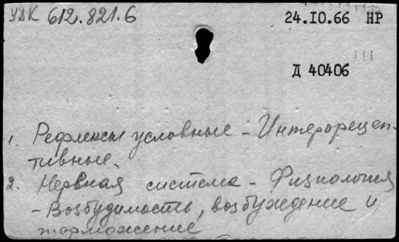 УДК 612.821.6
24.IO.66 НР
Д 40406
1. Рефлексы условные - Интерорецеп-
тивные.
2. Нервная система - Физиология
- Возбудимость, возбуждение и
торможение